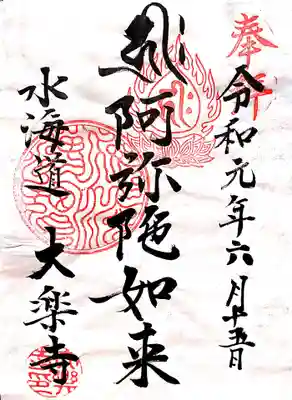 奉拝
令和元年六月十五日
阿弥陀如来
水海道 大楽寺